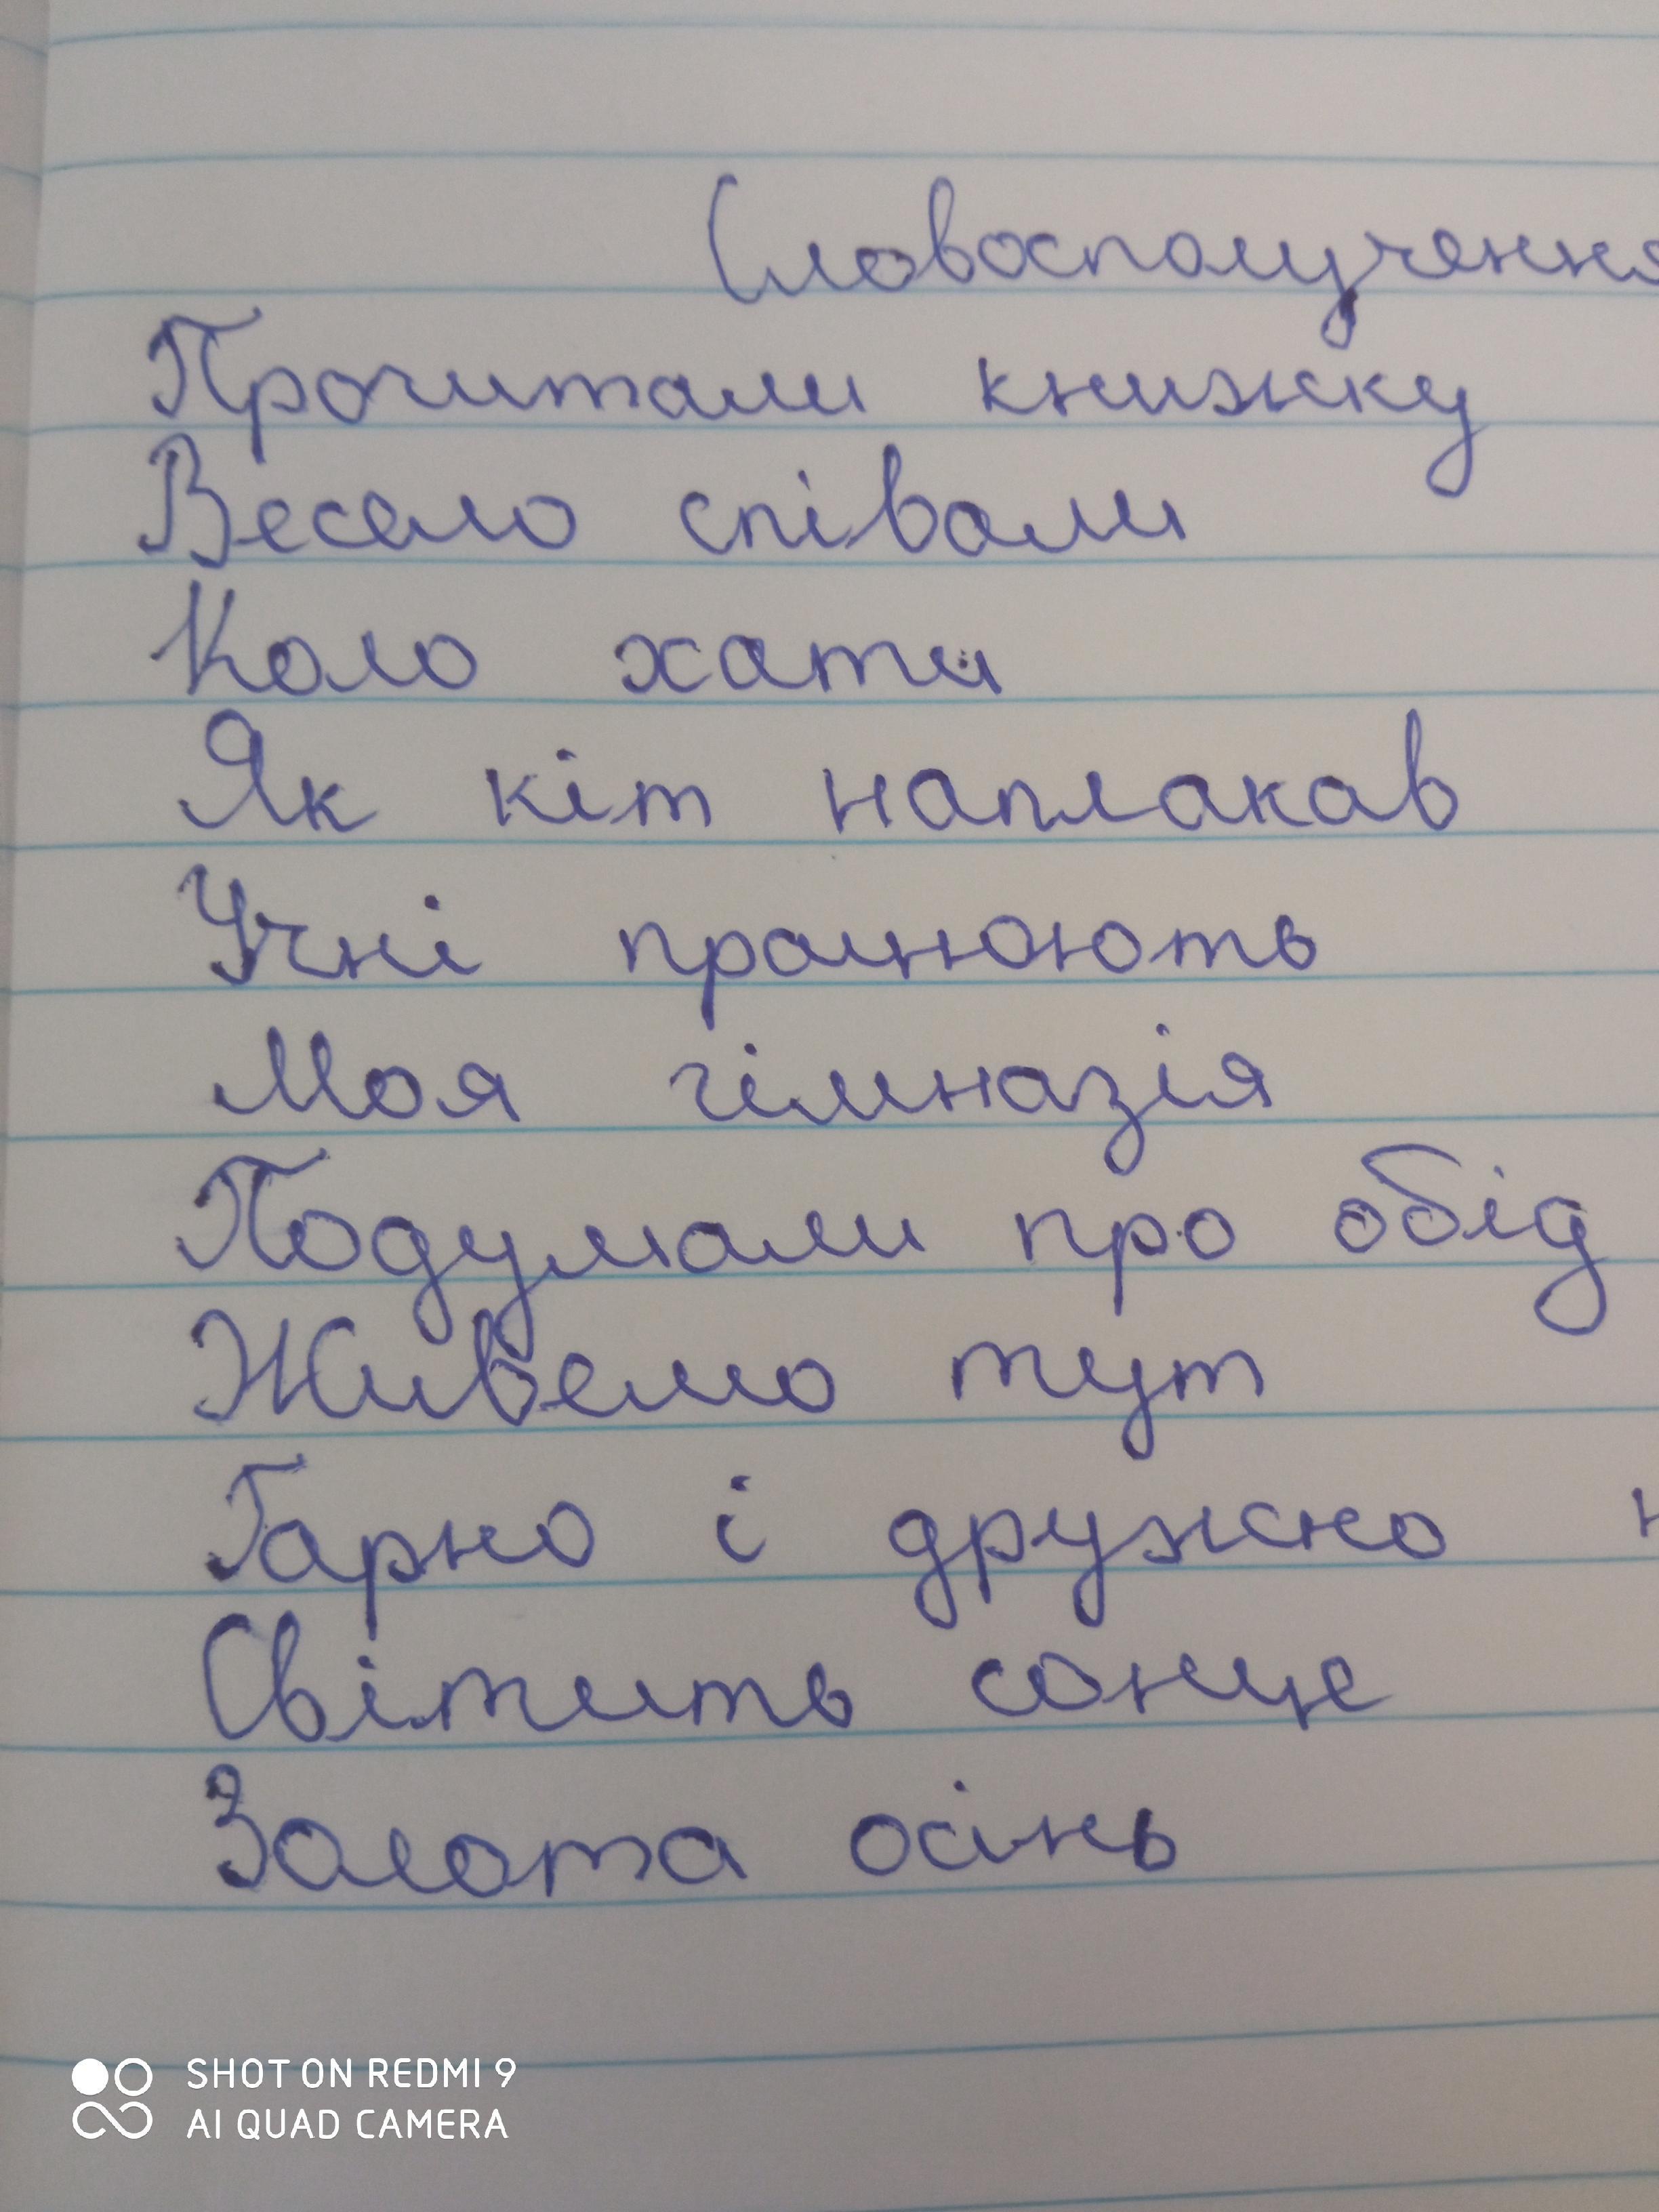 Словосполучення
Прочитали книжку
Весело співали
Коло хати
Як кіт наплакав
Учні працюють
Моя гімназія
Подумали про обід
Живемо тут
Гарно і дружно
Світить сонце
Золота осінь
SHOT ON REDMI 9
AI QUAD CAMERA